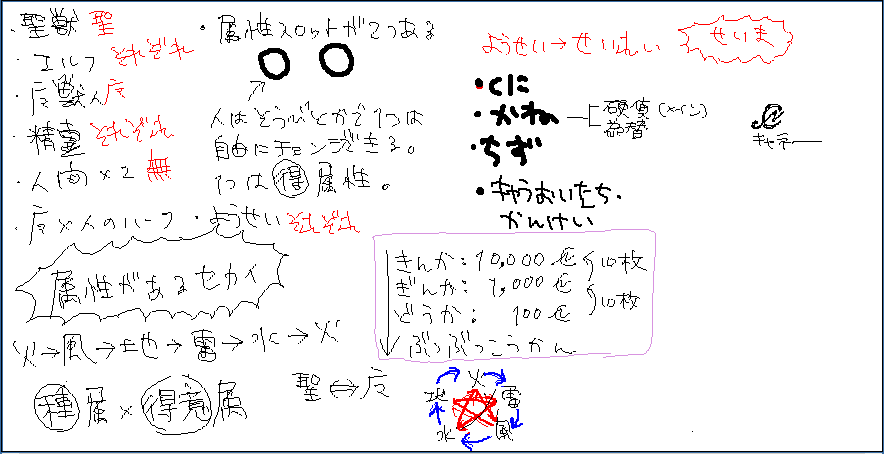 ・聖獣 聖
・エルフ それぞれ
・戻獣人 戻
・精霊 それぞれ
・人間×2 無
・戻×人のハーフ
・ようせい それぞれ
・属性スロットが2つある
人はそうびとかで1つは
自由にチェンジできる。
1つは得属性。
ようせい→せいれい
せいま
・くに
・かね
硬貨 (メイン)
為替
・ちず
・キャラおいたち・
かんけい
キャラー
属性があるセカイ
火→風→地→雷→水→火
種属×得意属
聖⇔戻
きんか:10,000
10枚
ぎんか:1,000
10枚
どうか:100
ぶつぶつこうかん
火
地 雷
水 風